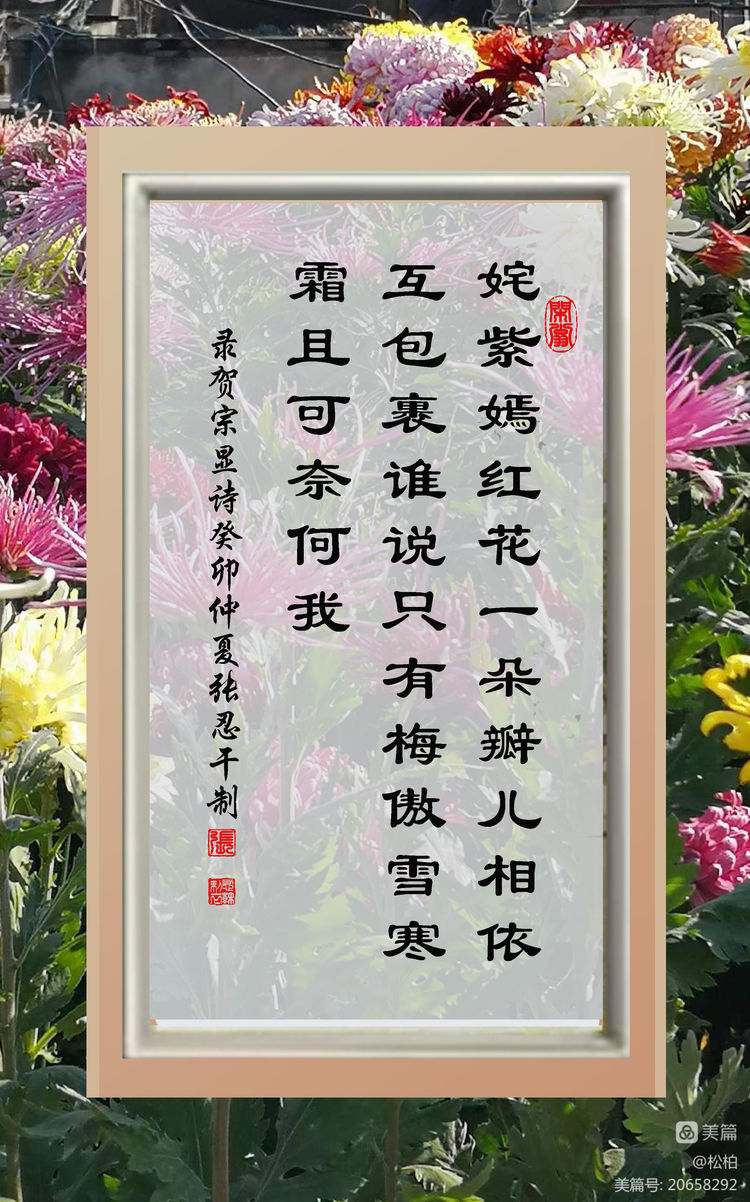 姹紫嫣红花一朵瓣儿相依
互包裹谁说只有梅傲雪寒
霜且可奈何我
录贺宗显诗癸卯仲夏张忍干制
張
美篇
@松柏
美篇号: 20658292